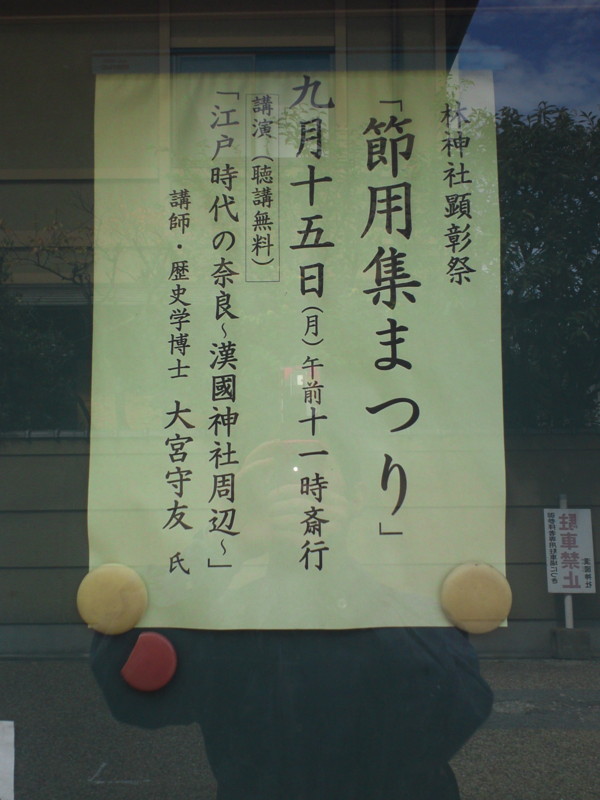 林神社顕彰祭
「節用集まつり」
九月十五日(月)午前十一時斎行
講演(聴講無料)
「江戸時代の奈良～漢國神社周辺～」
講師・歴史学博士 大宮守友 氏
駐車禁止